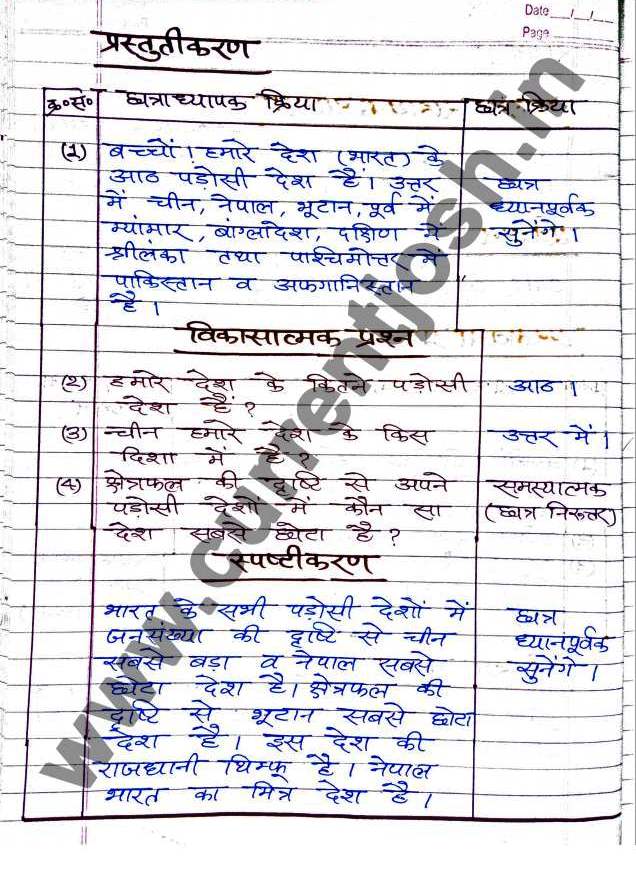 Date / /
Page
प्रस्तुतीकरण
क्र०सं० छात्राध्यापक क्रिया छात्र क्रिया
(1) बच्चों! हमारे देश (भारत) के
आठ पड़ोसी देश हैं। उत्तर छात्र
में चीन, नेपाल, भूटान, पूर्व में ध्यानपूर्वक
म्यांमार, बांग्लादेश, दक्षिण में सुनेंगे।
श्रीलंका तथा पाश्चिमोत्तर में
पाकिस्तान व अफगानिस्तान
है।
विकासात्मक प्रश्न
(2) हमारे देश के कितने पड़ोसी आठ।
देश हैं?
(3) चीन हमारे देश के किस उत्तर में।
दिशा में है?
(4) क्षेत्रफल की दृष्टि से अपने समस्यात्मक
पड़ोसी देशों में कौन सा (छात्र निरुत्तर)
देश सबसे छोटा है?
स्पष्टीकरण
भारत के सभी पड़ोसी देशों में छात्र
जनसंख्या की दृष्टि से चीन ध्यानपूर्वक
सबसे बड़ा व नेपाल सबसे सुनेंगे।
छोटा देश है। क्षेत्रफल की
दृष्टि से भूटान सबसे छोटा
देश है। इस देश की
राजधानी थिम्फू है। नेपाल
भारत का मित्र देश है।
www.currentjosh.in